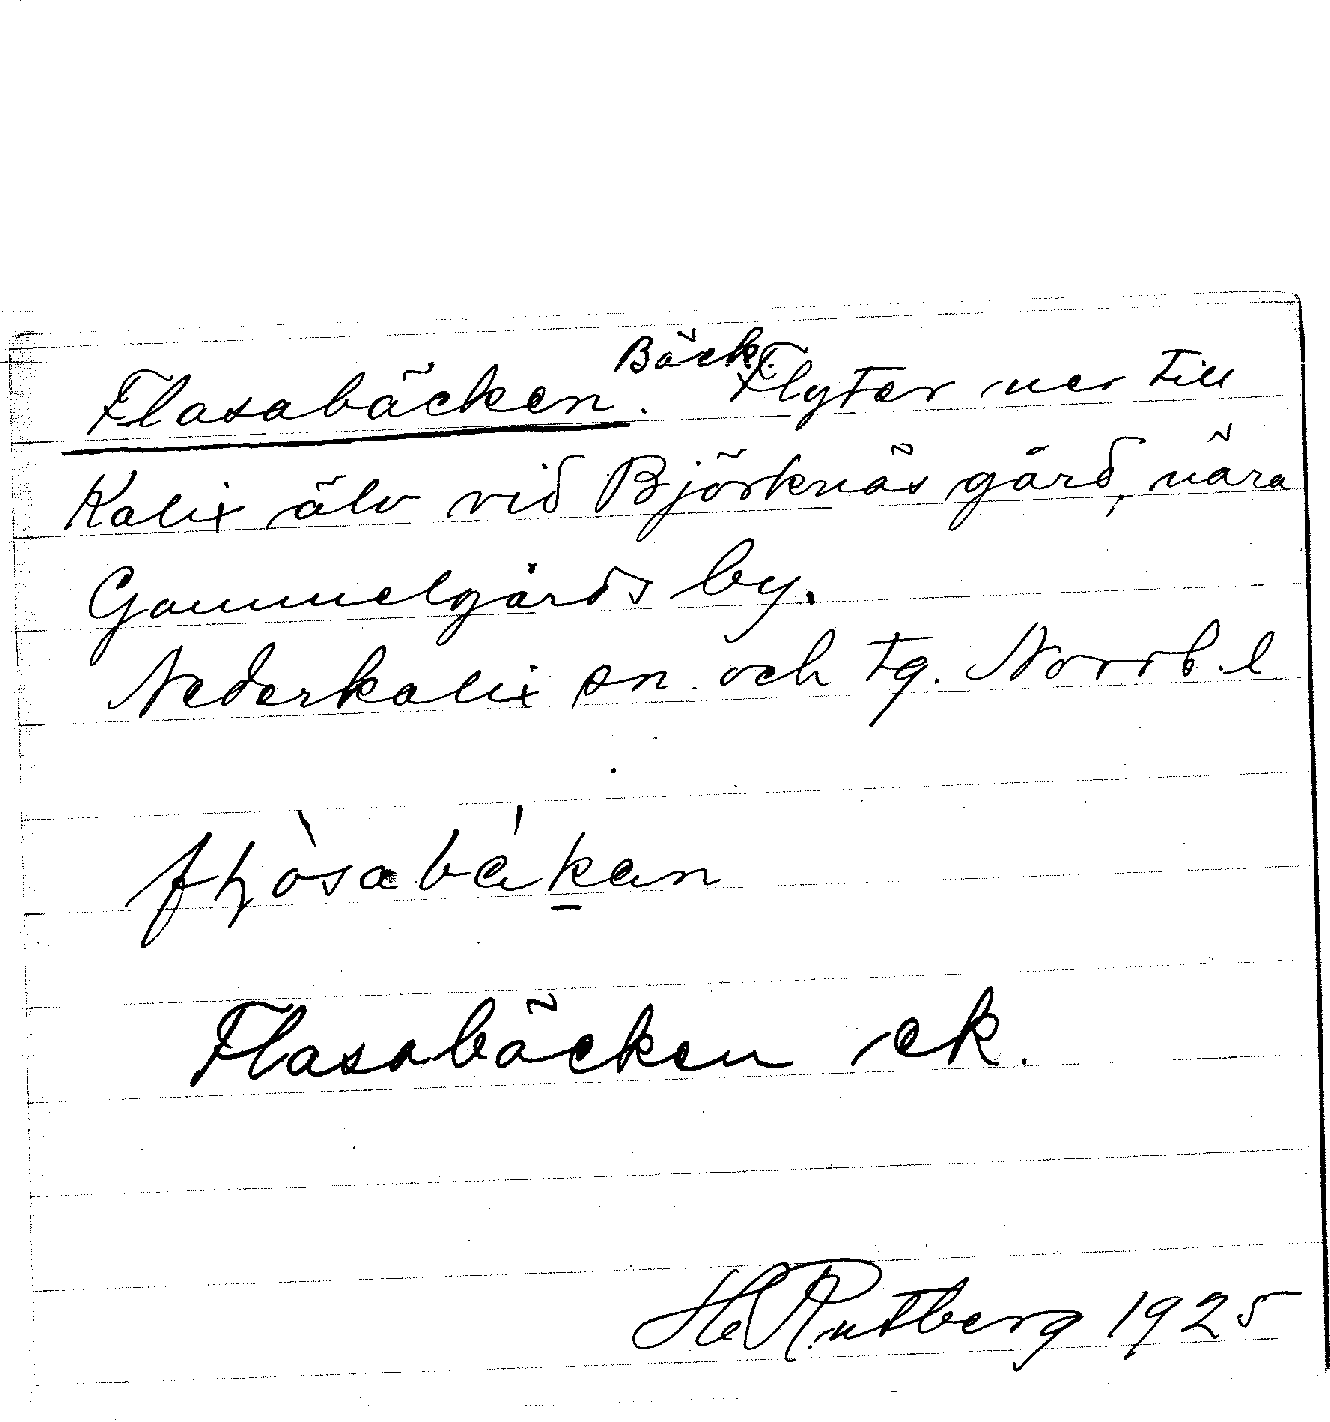 Flasabäcken. Bäck. Flyter ner till
Kalix älv vid Björknäs gård, nära
Gammelgårds by.
Nederkalix sn och tg. Norrb. l
Flasabäcken ek.
H Rutberg 1925